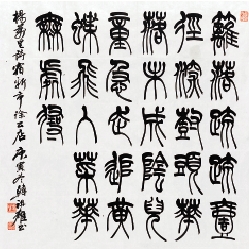 籬落疏疏壹
徑深樹頭華
落未成陰兒
童急走追黃
蝶飛入菜華
無處尋
楊萬里詩宿新市徐公店庚寅